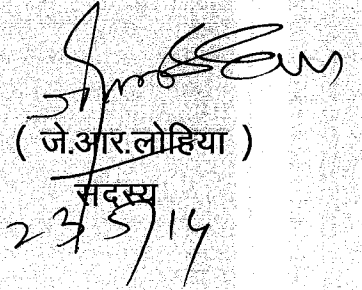 ( जे.आर.लोहिया )
सदस्य
23/5/14